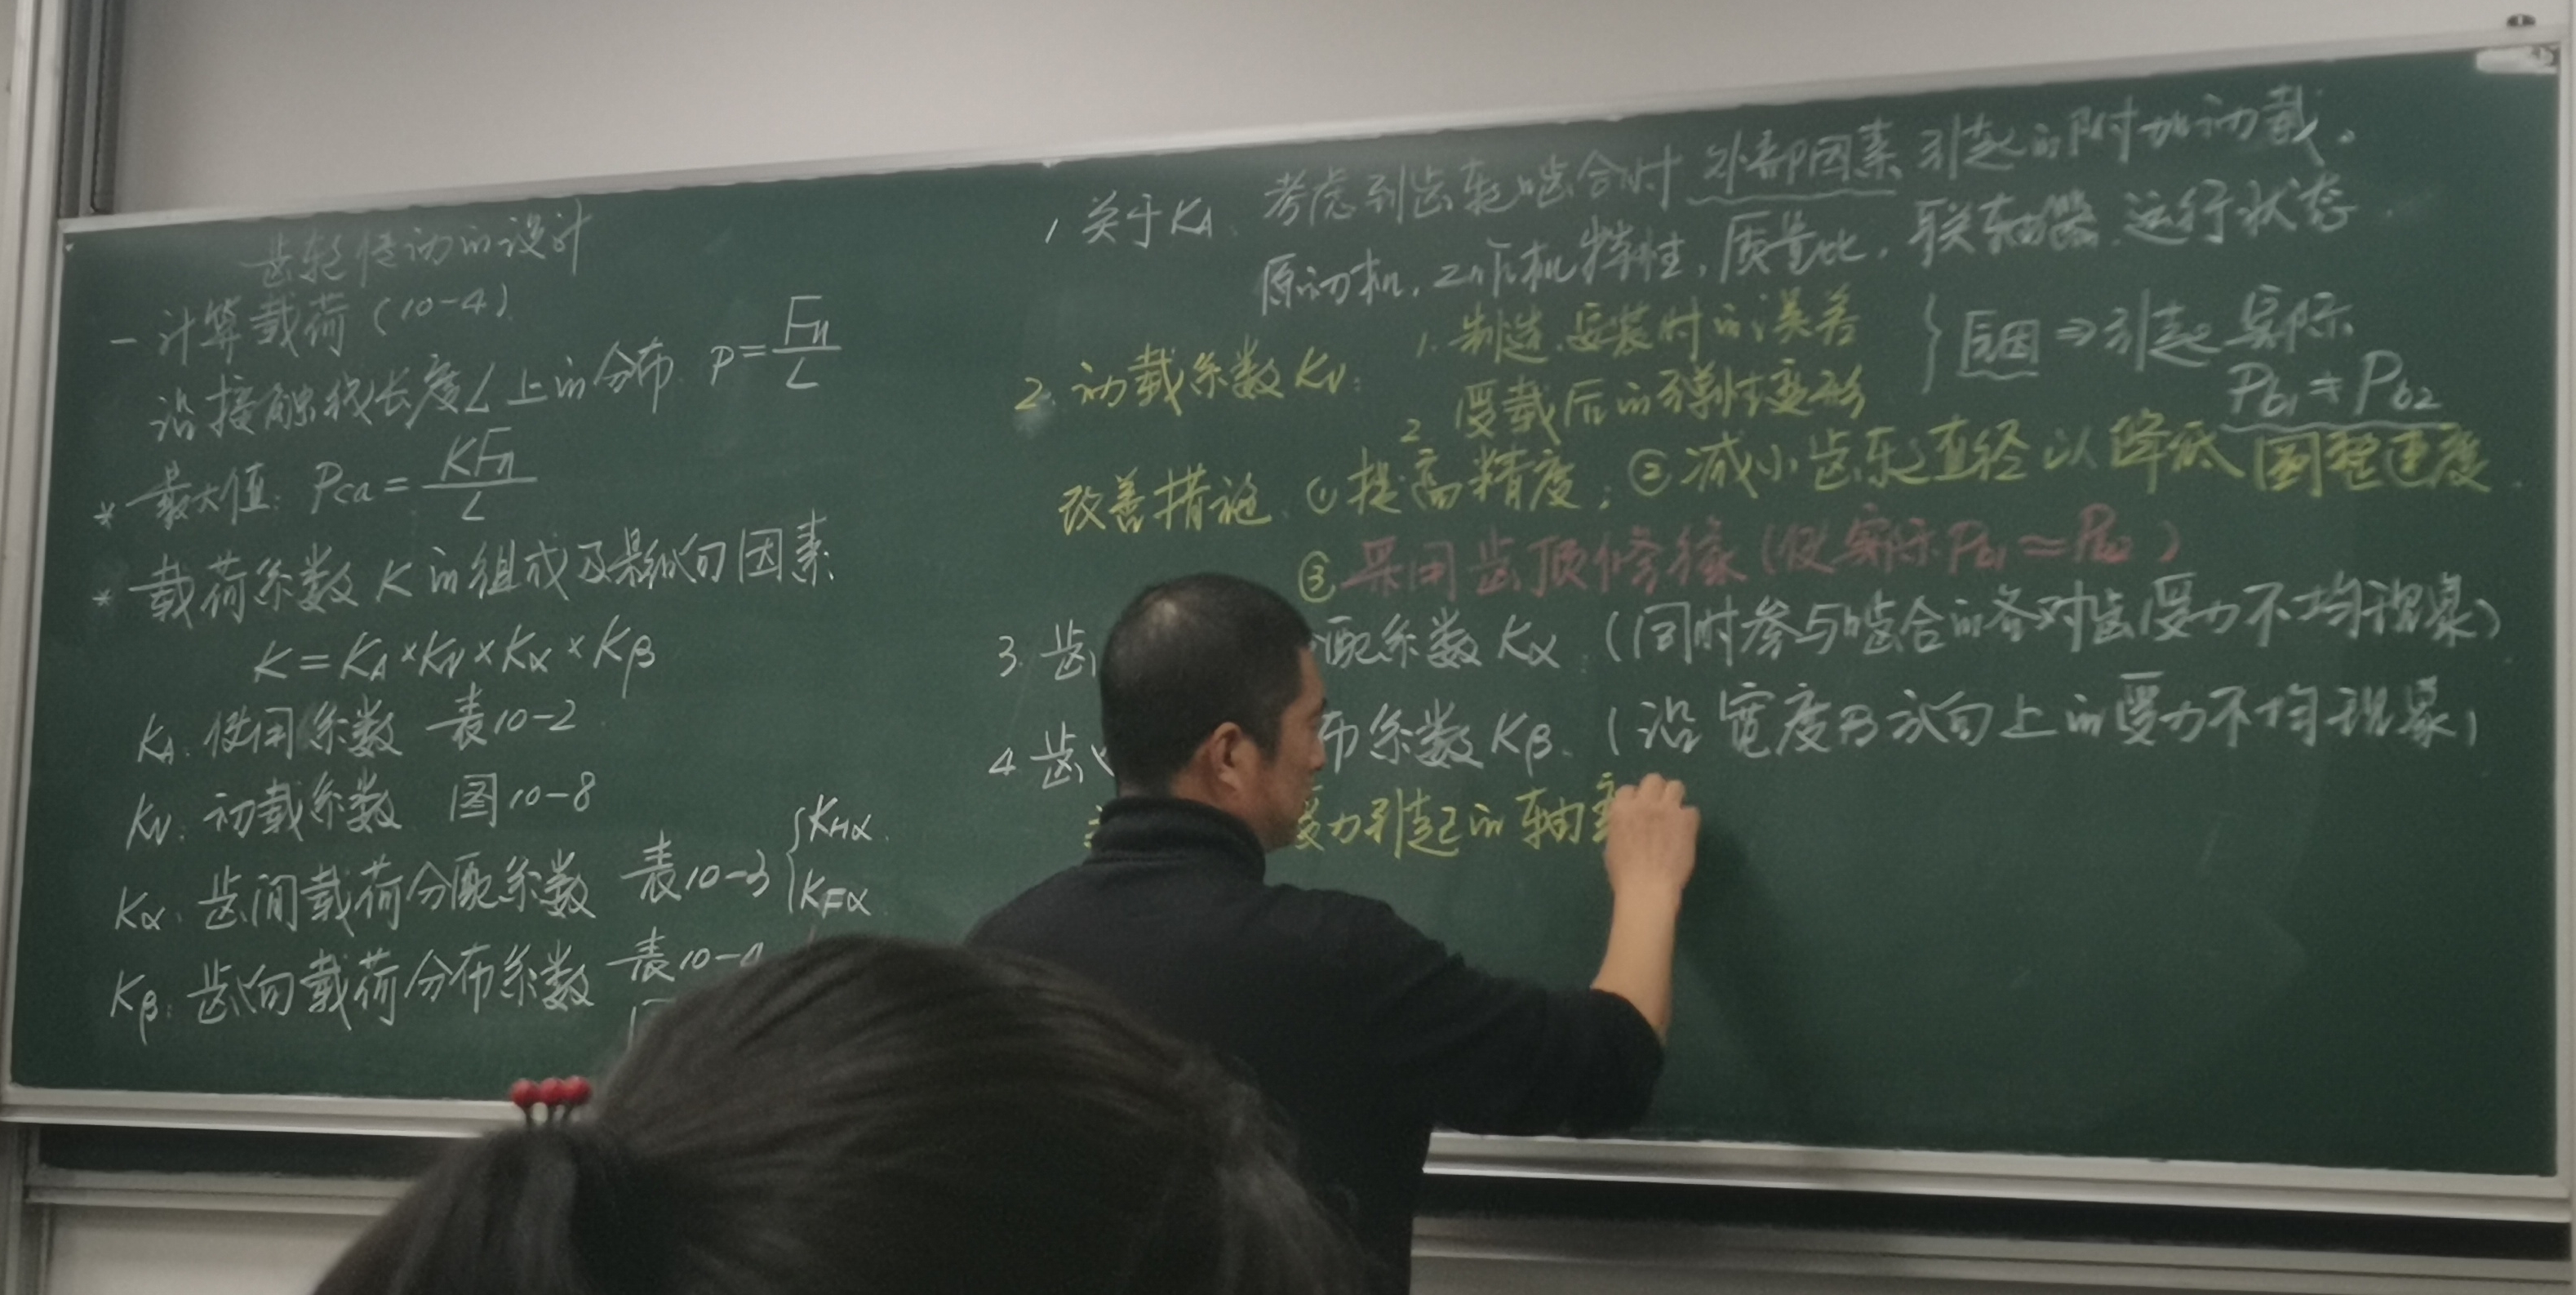 齿轮传动的设计
一 计算载荷（10-4）
沿接触线长度L上的分布 P=Fn/L
* 最大值: Pca=KFn/L
* 载荷系数K的组成及影响因素
K=KA×KV×Kα×Kβ
KA: 使用系数 表10-2
KV: 动载系数 图10-8
Kα: 齿间载荷分配系数 表10-3 { KHα
KFα
Kβ: 齿向载荷分布系数 表10-4
1 关于KA: 考虑到齿轮啮合时外部因素引起的附加动载。
原动机, 工作机特性, 质量比, 联轴器, 运行状态
2. 动载系数KV: 1. 制造、安装时的误差
2 受载后的弹性变形
} 原因⇒引起实际
Pb1≠Pb2
改善措施 ①提高精度; ②减小齿轮直径以降低圆整速度
③ 采用齿顶修缘(使实际Pb1≈Pb2)
3. 齿 配系数Kα. (同时参与啮合的各对齿受力不均现象)
4 齿 布系数Kβ. (沿宽度B方向上的受力不均现象)
受力引起的轴